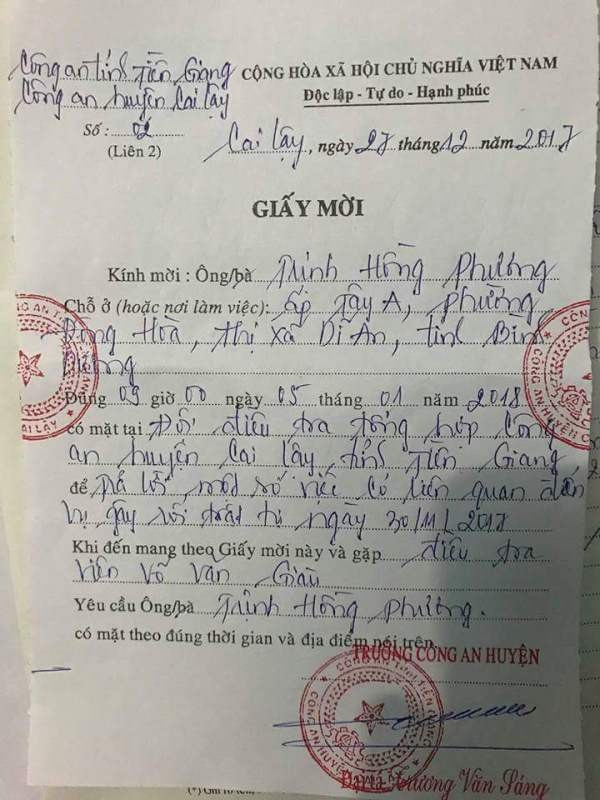 Công an tỉnh Tiền Giang
Công an huyện Cai Lậy
Số : 02
(Liên 2)
CỘNG HÒA XÃ HỘI CHỦ NGHĨA VIỆT NAM
Độc lập - Tự do - Hạnh phúc
Cai Lậy, ngày 27 tháng 12 năm 2017
GIẤY MỜI
Kính mời : Ông/bà Trịnh Hồng Phương
Chỗ ở (hoặc nơi làm việc): ấp Tây A, phường
Đông Hòa, thị xã Dĩ An, tỉnh Bình
Dương
Đúng 09 giờ 00 ngày 05 tháng 01 năm 2018
có mặt tại Đội điều tra tổng hợp Công
an huyện Cai Lậy, tỉnh Tiền Giang
để trả lời một số việc có liên quan đến
vụ gây rối trật tự ngày 30/11/2017
Khi đến mang theo Giấy mời này và gặp điều tra
viên Võ Văn Giàu
Yêu cầu Ông/bà Trịnh Hồng Phương.
có mặt theo đúng thời gian và địa điểm nói trên.
TRƯỞNG CÔNG AN HUYỆN
Đại tá Trương Văn Sáng